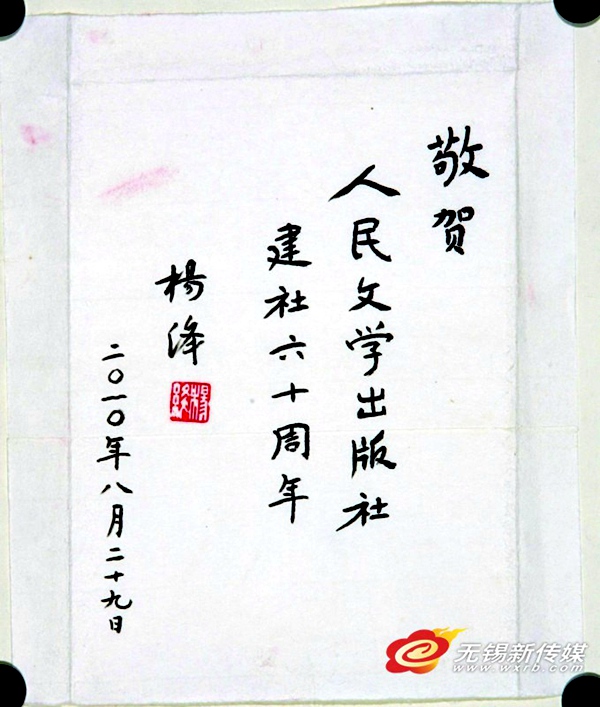 敬贺
人民文学出版社
建社六十周年
杨绛
二〇一〇年八月二十九日
无锡新传媒
www.wxrb.com